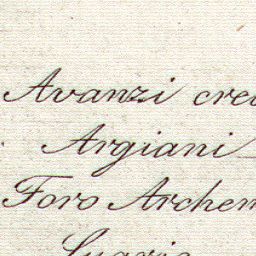 Avanzi cre
Argiani
Foro Archem